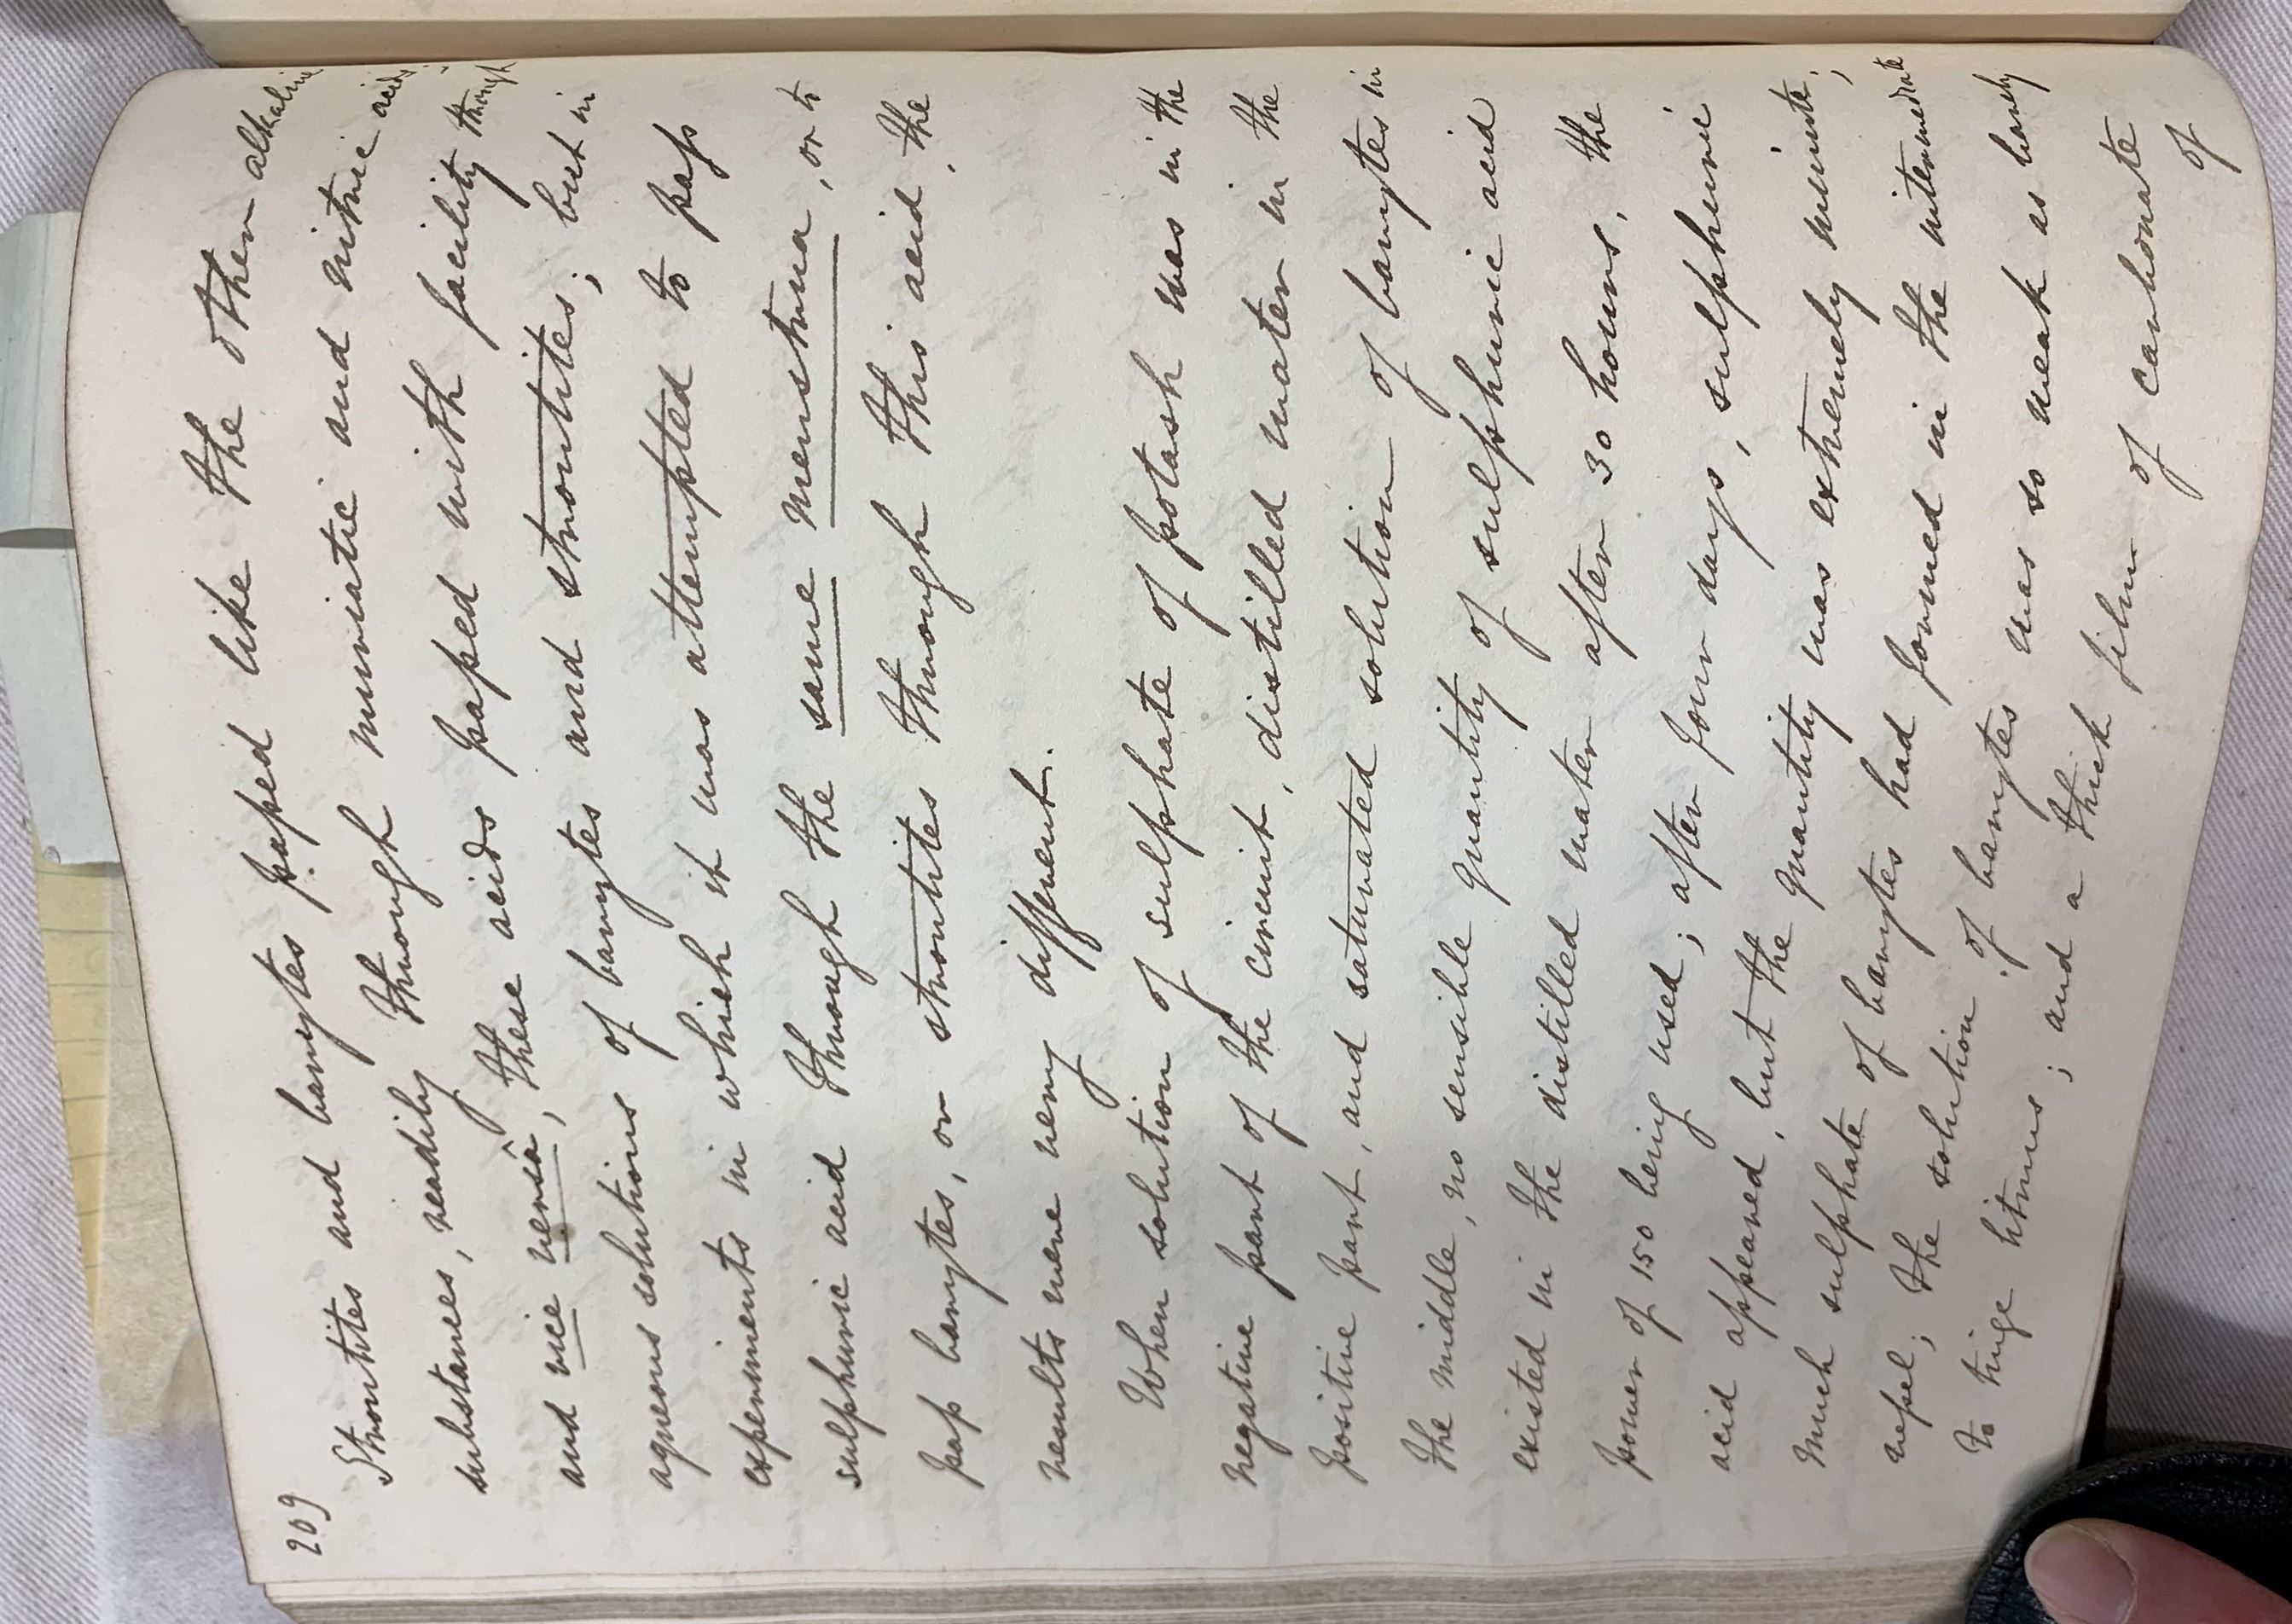 209
Strontites and barytes passed like the other alkaline
substances, readily through muriatic and nitric acids;
and vice versâ, these acids passed with facility through
aqueous solutions of barytes and strontites; but in
experiments in which it was attempted to pass
sulphuric acid through the same menstrua, or to
pass barytes, or strontites through this acid, the
results were very different.
When solution of sulphate of potash was in the
negative part of the circuit, distilled water in the
positive part, and saturated solution of barytes in
the middle, no sensible quantity of sulphuric acid
existed in the distilled water after 30 hours, the
power of 150 being used; after four days, sulphuric
acid appeared, but the quantity was extremely minute;
much sulphate of barytes had formed in the intermediate
vessel; the solution of barytes was so weak as barely
to tinge litmus; and a thick film of carbonate
of